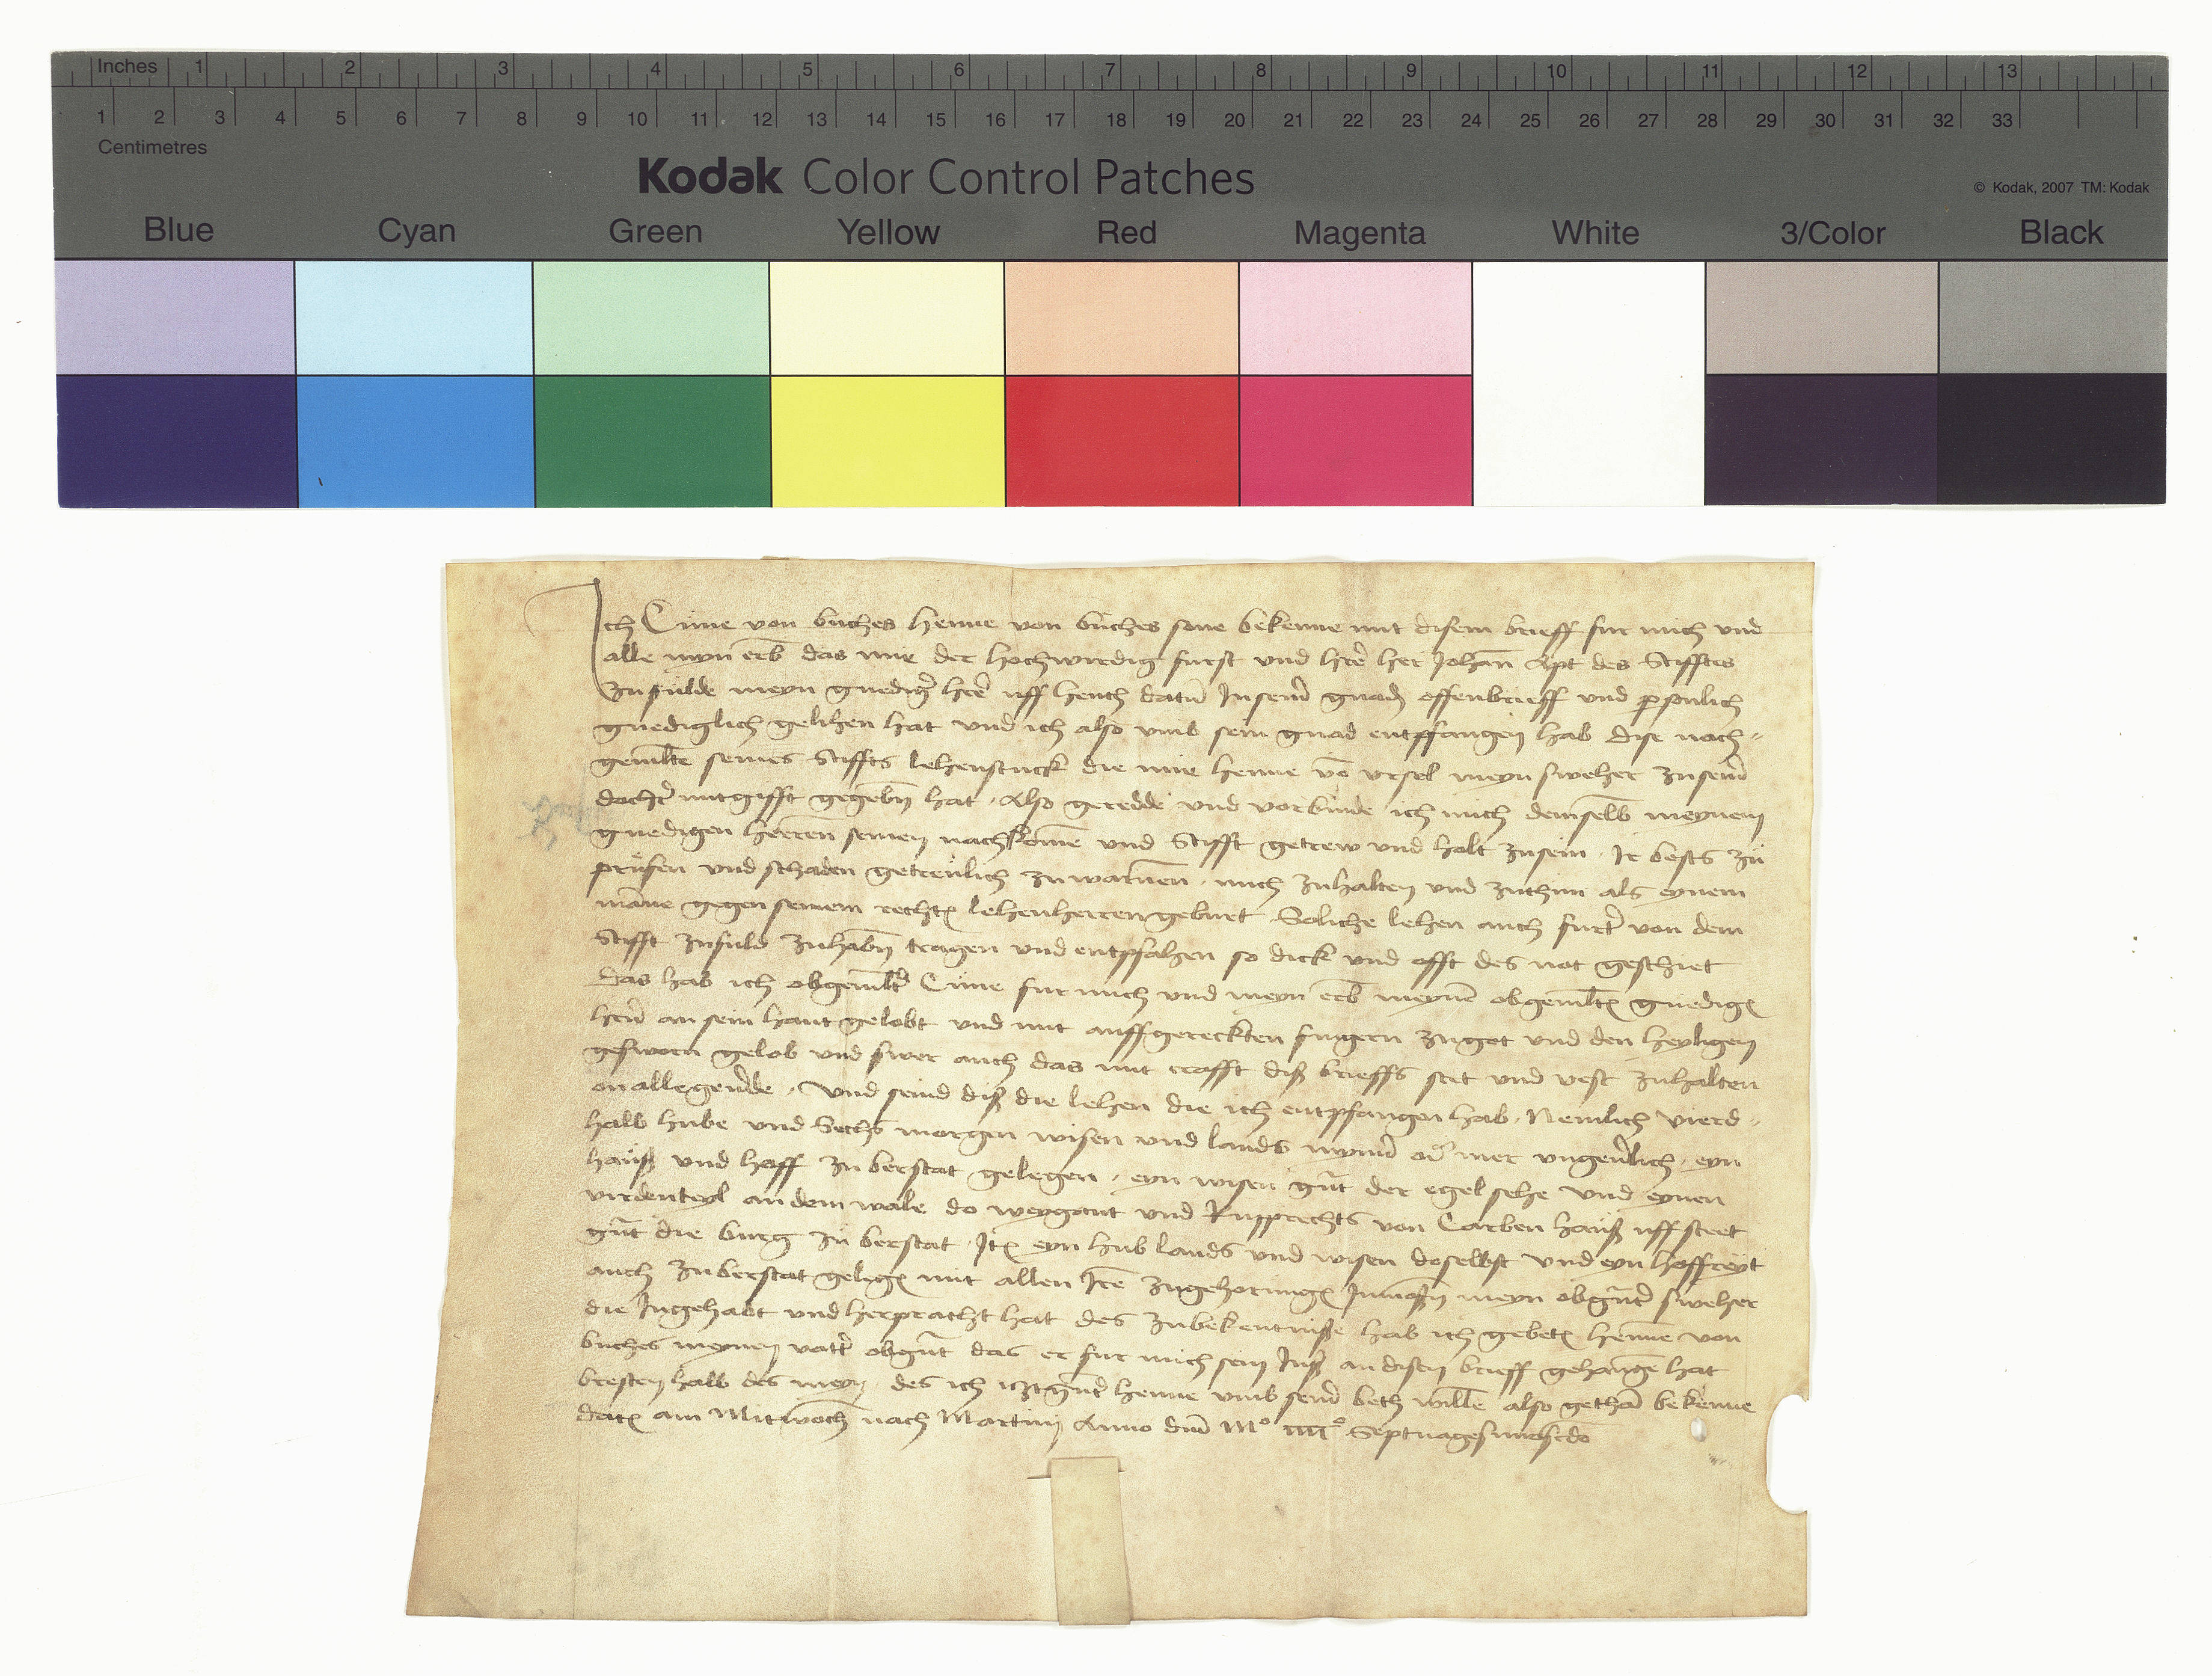 Inches 1 2 3 4 5 6 7 8 9 10 11 12 13
1 2 3 4 5 6 7 8 9 10 11 12 13 14 15 16 17 18 19 20 21 22 23 24 25 26 27 28 29 30 31 32 33
Centimetres
Kodak Color Control Patches
© Kodak, 2007 TM: Kodak
Blue Cyan Green Yellow Red Magenta White 3/Color Black
Ich Cune von buches Henne von buches sone bekenne mit disem brieff fur mich und
alle myn erb das mir der hochwirdig furst und hre her Johan Apt des Stifftes
zu fulde meyn gnedigr hre uff heuth datu In seinr gnad offenbrieff und psonlich
gnediglich gelihen hat und ich also umb sein gnad entpfangen hab dise noch-
gemlte seines Stiffts lehenstuck die mir Henne vo Ursel meyn sweher zu seinr
dochtr mitgifft gegebn hat · Also geredde und vorbinde ich mich demselb meynem
gnedigen herren seinen nachkome und Stifft getrew und holt zusein · Ir bests zu
prufen und schaden getreulich zu warnen · mich zuhalten und zuthun als eynem
mane gegen seinem recht lehenherren geburt · Soliche lehen auch furtr von dem
Stifft zu fuld zuhabn tragen und entpfahen so dick und offt des not geschiet
Das hab ich obgemltr Cune fur mich und meyn erb meyne obgemlt gnedig
hrn an sein hant gelobt und mit auffgereckten fingern zu got und den heyligen
gesworn gelob und swer auch das mit crafft diß brieffs stat und vest zuhalten
on alle geuerde · Und seind diß die lehen die ich entpfangen hab · Nemlich vierd-
halb hube und Sechs morgen wisen und lands mynr odr mer ungeuerlich · eyn
hauß und hoff zu berstat gelegen · eyn wisen gnt der egelsehe und eynen
virdenteyl an dem wale do weygant und Rupprechts von Carben hauß uff steet
gnt die burg zu berstat · It eyn hub lands und wisen doselbst und eyn hoffreyt
auch zu berstat geleg mit allen Ire zugehorung Inmoßn meyn obgntr sweher
die Ingehabt und herpracht hat des zu bekentniße hab ich gebet Henne von
buches meynen vatr obgnt das er fur mich sein Inß an disen brieff gehange hat
bresten halb des meyn · des ich itztgntr Henne umb seinr beth wille also getha bekenne
dat am Mitwoch nach Martini Anno dni Mo iiiio Septuagesimoscdo